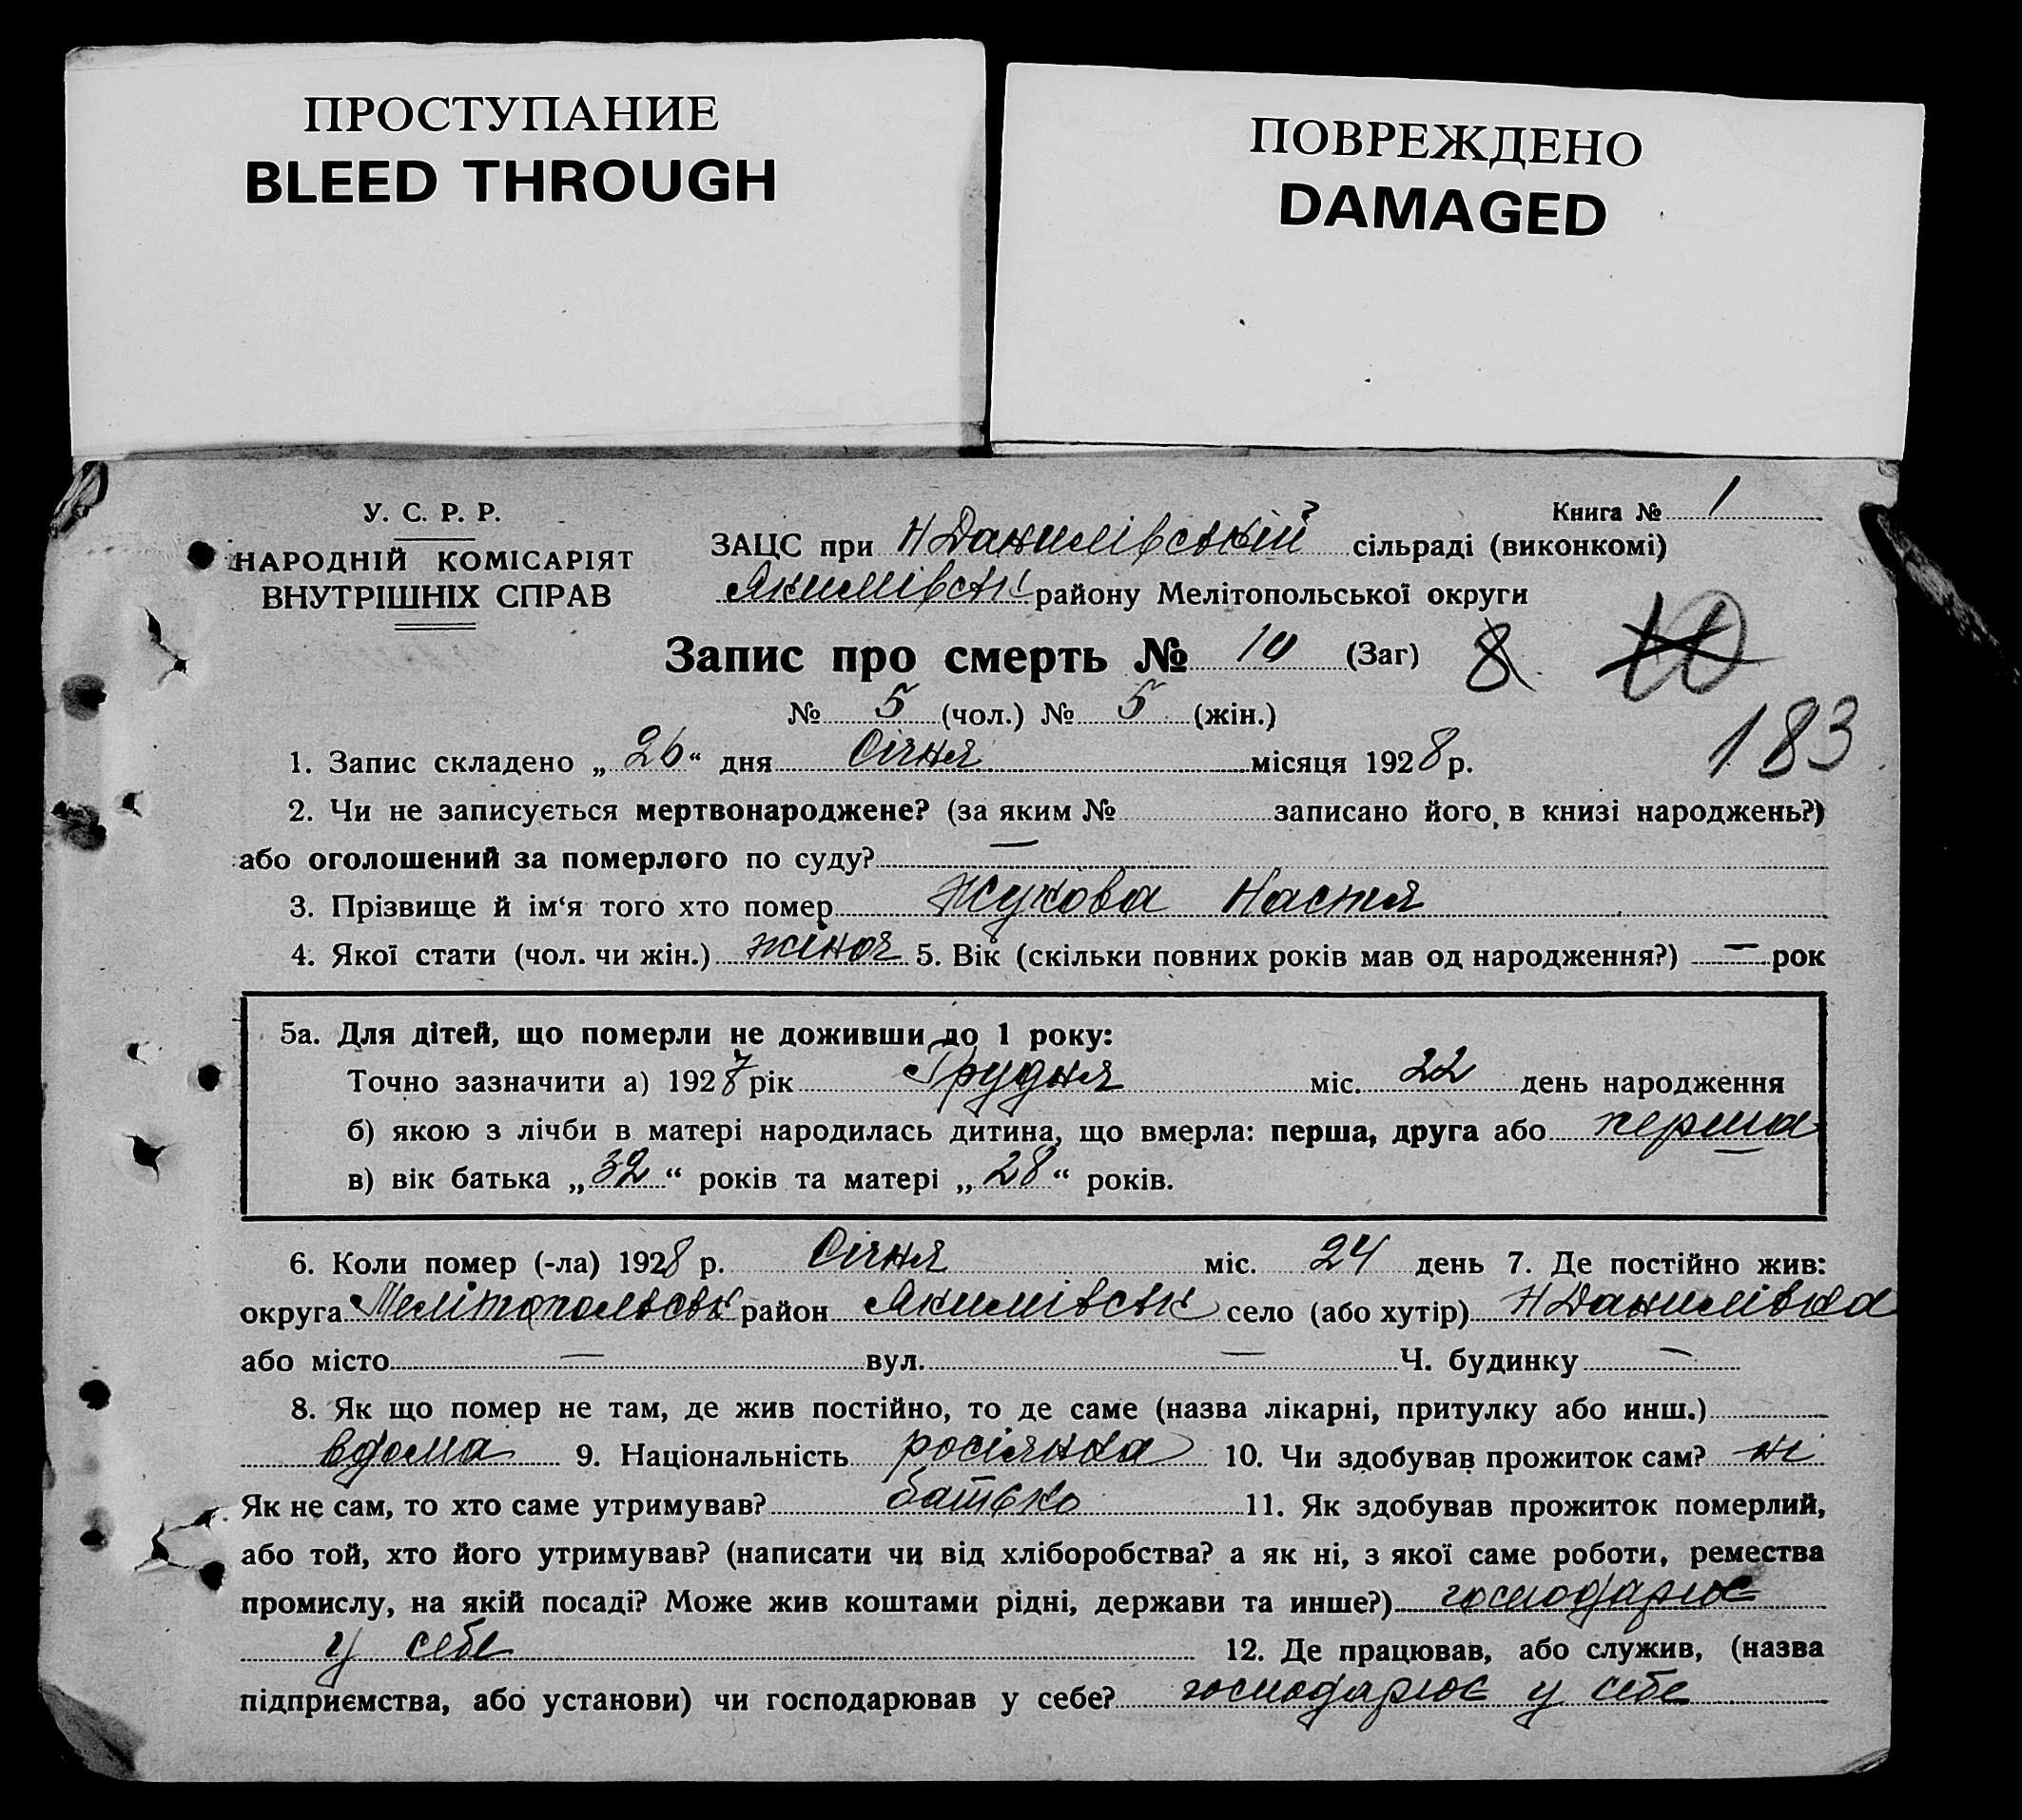 ПРОСТУПАНИЕ
BLEED THROUGH
ПОВРЕЖДЕНО
DAMAGED
У. С. Р. Р.
НАРОДНІЙ КОМІСАРІЯТ
ВНУТРІШНІХ СПРАВ
Книга № 1
ЗАЦС при Н Данилівській сільраді (виконкомі)
Якимівськ району Мелітопольської округи
Запис про смерть № 10 (Заг) 8 10
№ 5 (чол.) № 5 (жін.)
183
1. Запис складено „ 26 “ дня Січня місяця 1928 р.
2. Чи не записується мертвонароджене? (за яким № записано його, в книзі народжень?)
або оголошений за померлого по суду? —
3. Прізвище й ім‘я того хто помер Жукова Настя
4. Якої стати (чол. чи жін.) жіноч 5. Вік (скільки повних років мав од народження?) — рок
5а. Для дітей, що померли не доживши до 1 року:
Точно зазначити а) 1927 рік Грудня міс. 22 день народження
б) якою з лічби в матері народилась дитина, що вмерла: перша, друга або перша
в) вік батька „ 32 “ років та матері „ 28 “ років.
6. Коли помер (-ла) 1928 р. Січня міс. 24 день 7. Де постійно жив:
округа Мелітопольськ район Якимівськ село (або хутір) Н Данилівка
або місто — вул. — Ч. будинку —
8. Як що помер не там, де жив постійно, то де саме (назва лікарні, притулку або инш.)
вдома 9. Національність росіянка 10. Чи здобував прожиток сам? ні
Як не сам, то хто саме утримував? батько 11. Як здобував прожиток померлий,
або той, хто його утримував? (написати чи від хліборобства? а як ні, з якої саме роботи, ремества
промислу, на якій посаді? Може жив коштами рідні, держави та инше?) господарює
у себе 12. Де працював, або служив, (назва
підприємства, або установи) чи господарював у себе? господарює у себе